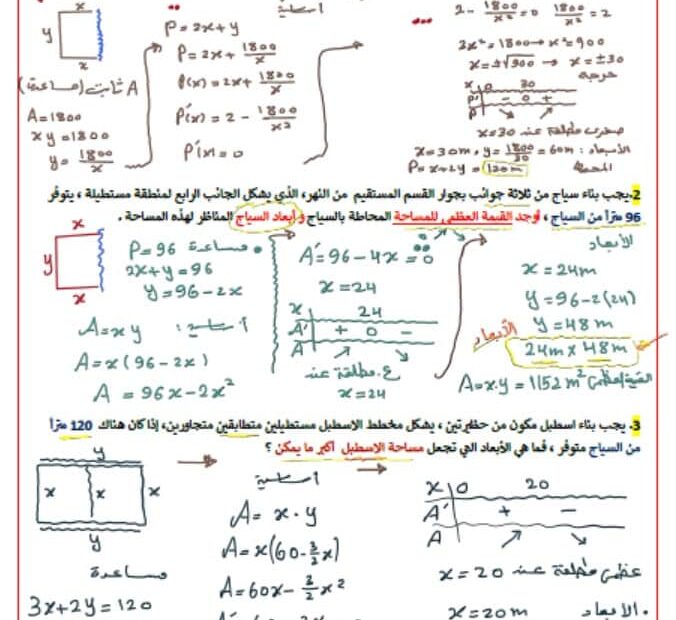 أساسية
P = 2x + y
x
y
x
P = 2x + 1800/x
P(x) = 2x + 1800/x
P'(x) = 2 - 1800/x²
P'(x) = 0
A ثابت (مساعدة)
A = 1800
xy = 1800
y = 1800/x
2 - 1800/x² = 0
1800/x² = 2
2x² = 1800 → x² = 900
x = ±√900 → x = ±30
حرجة
x 0 30
P' - 0 +
P
صغرى مطلقة عند x=30
الأبعاد: x = 30m, y = 1800/30 = 60m
P = x+2y = 120m
2. يجب بناء سياج من ثلاثة جوانب بجوار القسم المستقيم من النهر، الذي يشكل الجانب الرابع لمنطقة مستطيلة، يتوفر
96 متراً من السياج، أوجد القيمة العظمى للمساحة المحاطة بالسياج وأبعاد السياج المناظر لهذه المساحة.
x
y
x
مساعدة P = 96
2x + y = 96
y = 96 - 2x
أساسية:
A = xy
A = x(96 - 2x)
A = 96x - 2x²
A' = 96 - 4x = 0
x = 24
x 24
A' + 0 -
A
ع. مطلقة عند
x = 24
الأبعاد
x = 24m
y = 96 - 2(24)
y = 48m
الأبعاد
24m x 48m
القيمة العظمى A = x.y = 1152 m²
3. يجب بناء اسطبل مكون من حظيرتين، يشكل مخطط الاسطبل مستطيلين متطابقين متجاورين، إذا كان هناك 120 متراً
من السياج متوفر، فما هي الأبعاد التي تجعل مساحة الاسطبل أكبر ما يمكن؟
y
x x x
y
مساعدة
3x + 2y = 120
أساسية
A = x . y
A = x(60 - 3/2 x)
A = 60x - 3/2 x²
x 0 20
A' + -
A
عظمى مطلقة عند x = 20
الأبعاد.
x = 20m